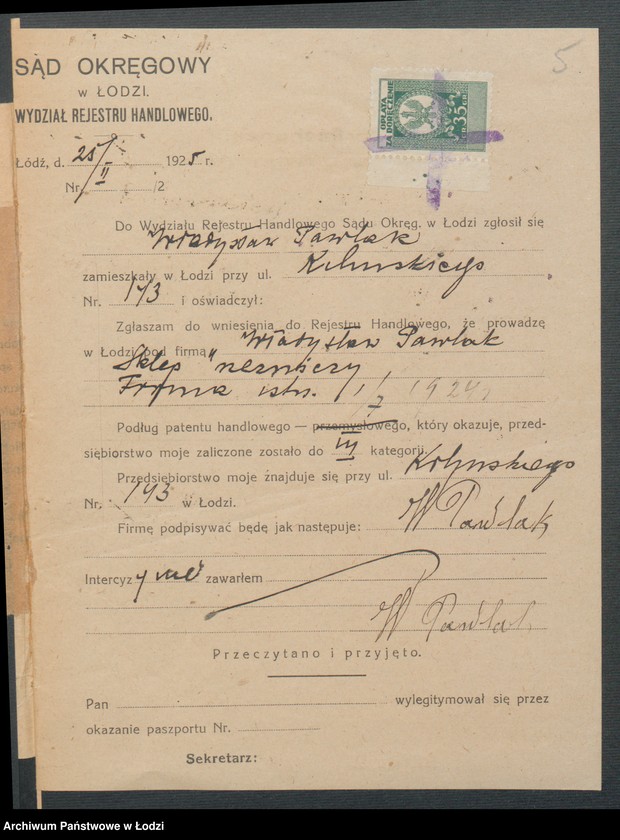 5
SĄD OKRĘGOWY
w ŁODZI.
WYDZIAŁ REJESTRU HANDLOWEGO.
OPŁATA
ZA DORĘCZENIE
35
Łódź, d. 25/II 1925 r.
Nr. /2
Do Wydziału Rejestru Handlowego Sądu Okręg. w Łodzi zgłosił się
Władysław Pawlak
zamieszkały w Łodzi przy ul. Kilińskiego
Nr. 143 i oświadczył:
Zgłaszam do wniesienia do Rejestru Handlowego, że prowadzę
w Łodzi pod firmą Władysław Pawlak
Sklep rzeźniczy
Firma istn. 1/7 1924 r
Podług patentu handlowego — przemysłowego, który okazuje, przed-
siębiorstwo moje zaliczone zostało do III kategorji.
Przedsiębiorstwo moje znajduje się przy ul. Kilińskiego
Nr. 143 w Łodzi.
Firmę podpisywać będę jak następuje: W Pawlak
Intercyzy nie zawarłem
W Pawlak
Przeczytano i przyjęto.
Pan wylegitymował się przez
okazanie paszportu Nr.
Sekretarz:
Archiwum Państwowe w Łodzi